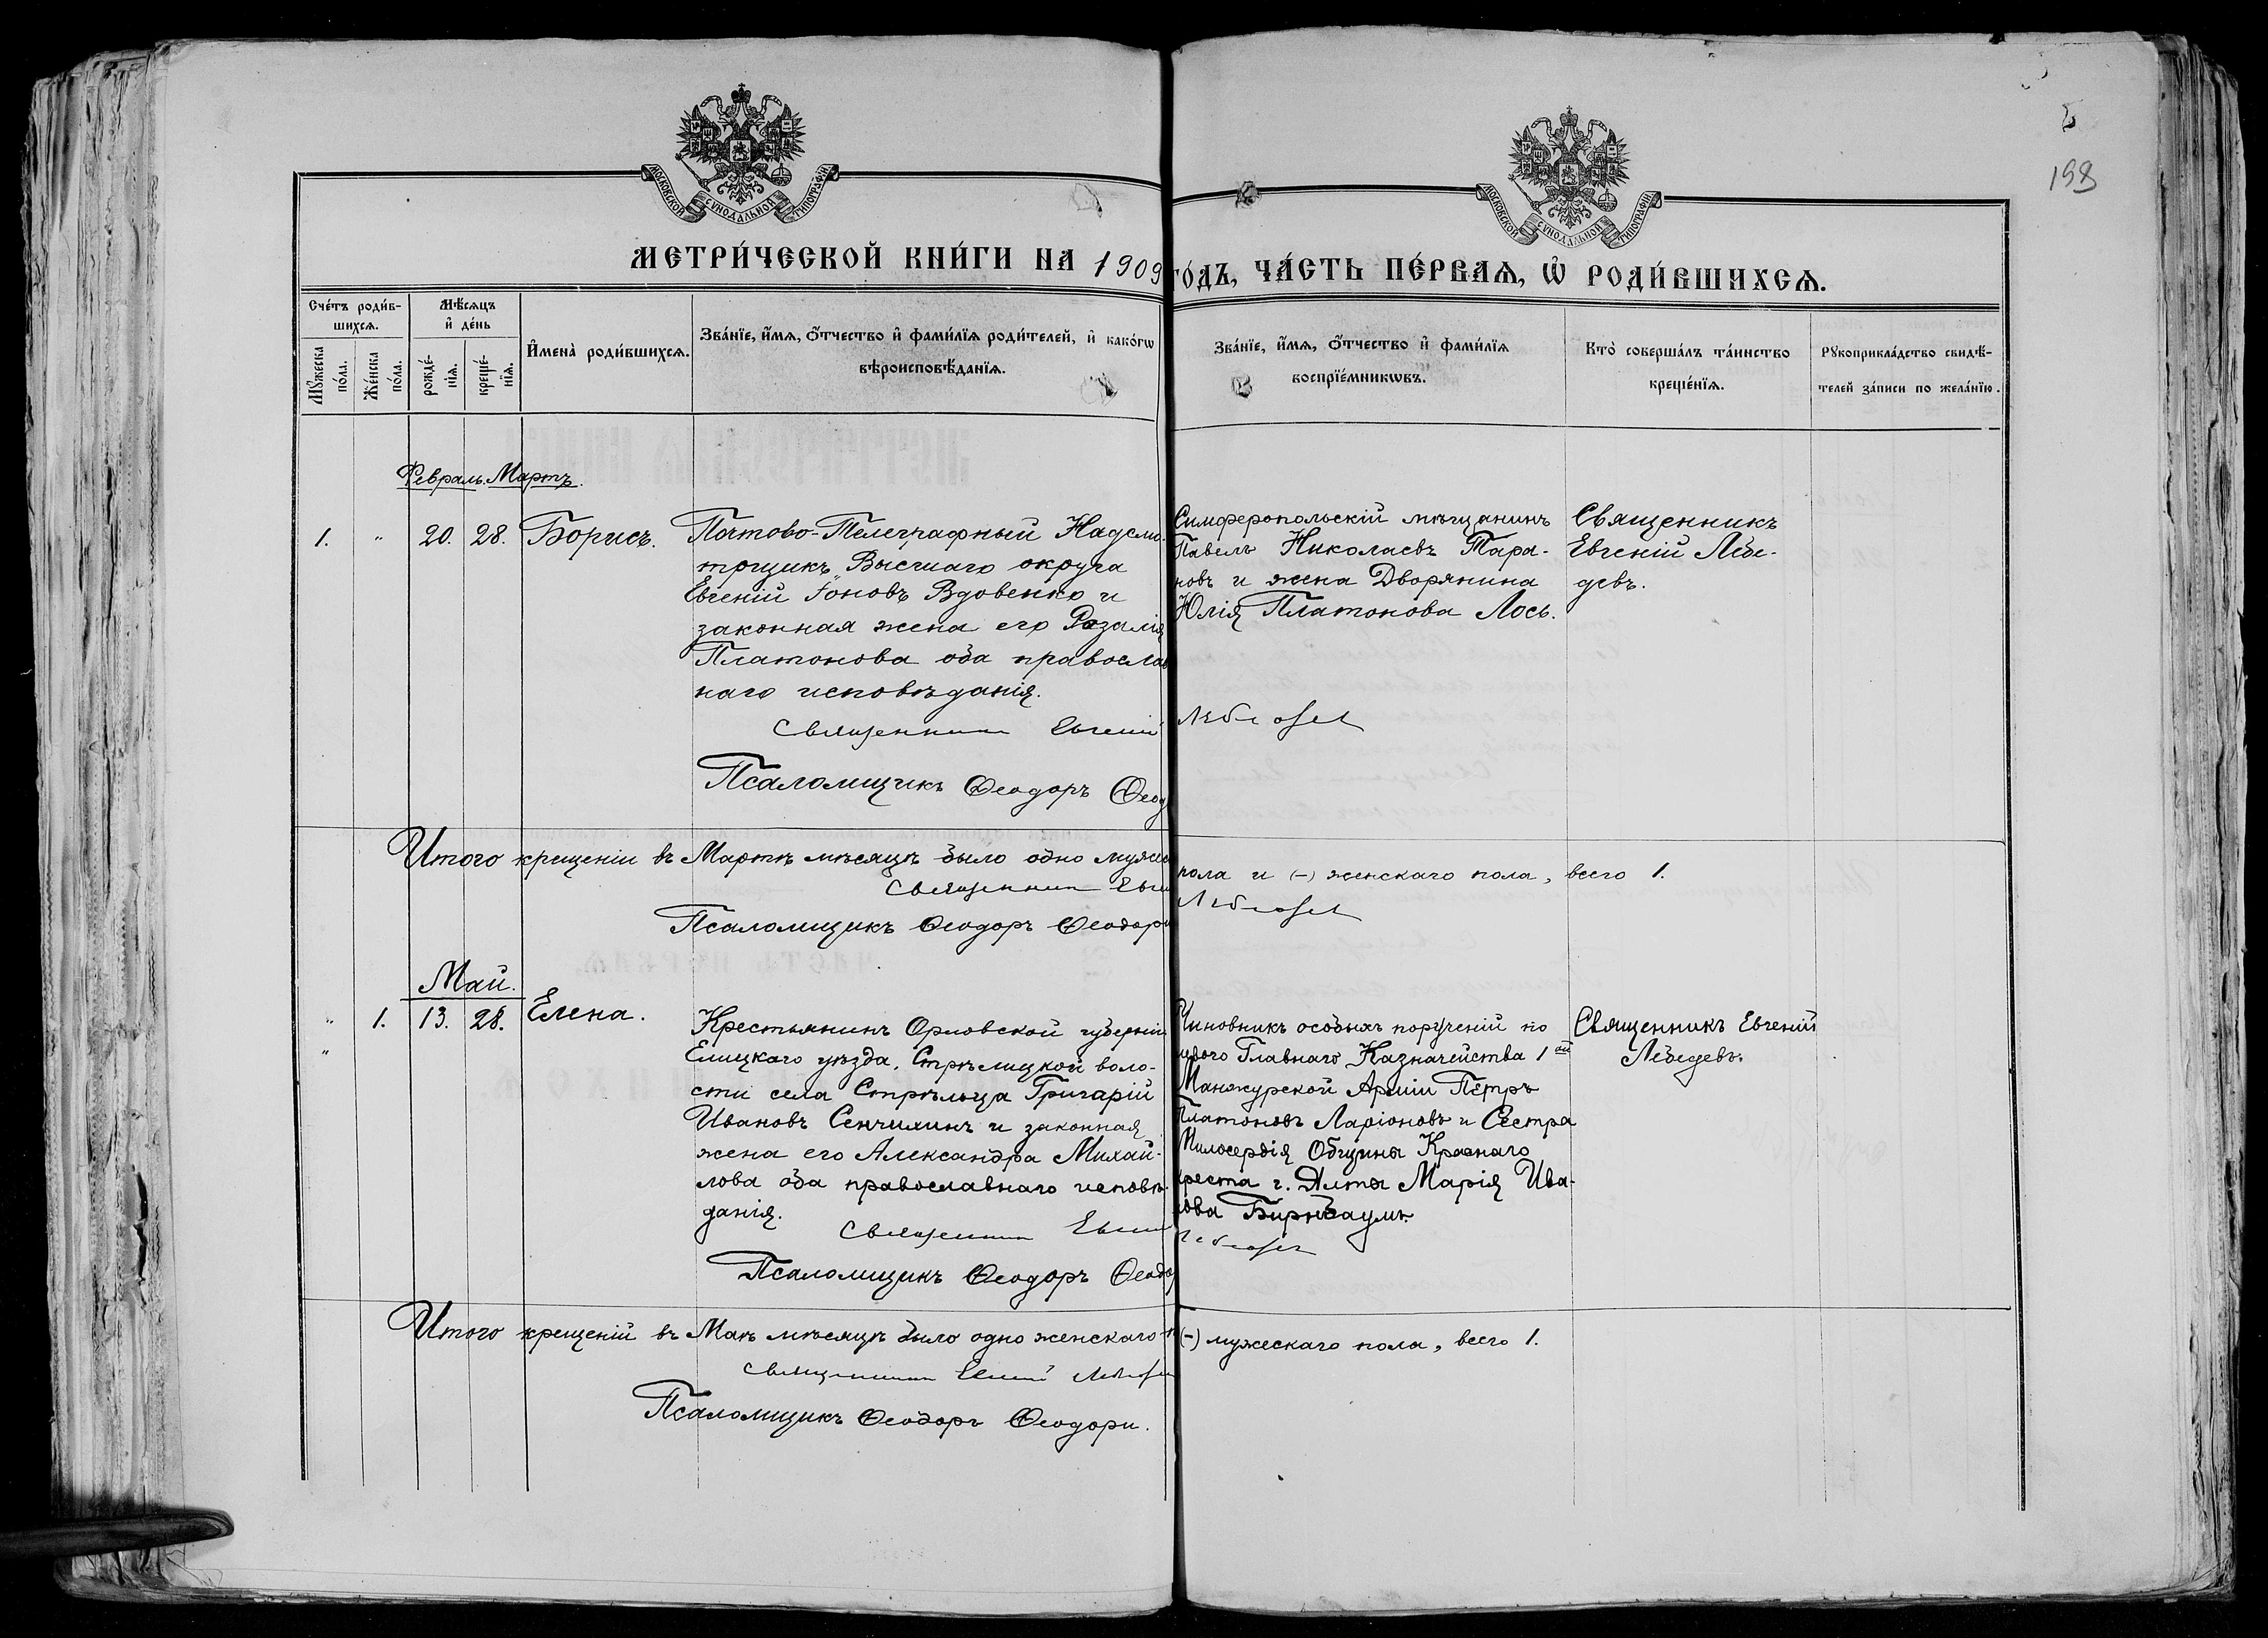 198
МОСКОВСКОЙ СѴНОДАЛЬНОЙ ТИПОГРАФІИ
МОСКОВСКОЙ СѴНОДАЛЬНОЙ ТИПОГРАФІИ
МЕТРИ́ЧЕСКОЙ КНИ́ГИ НА 1909 ГО́ДЪ, ЧА́СТЬ ПЕ́РВАѦ, Ѡ҆ РОДИ́ВШИХСѦ.
Сче́тъ роди́в-
шихсѧ.
Мꙋ́жеска по́ла.
Же́нска по́ла.
Мѣ́сѧцъ
и҆ де́нь
рожде́-
нїѧ.
креще́-
нїѧ.
И҆мена̀ роди́вшихсѧ.
Зва́нїе, и҆́мѧ, ѻ҆́тчество и҆ фами́лїѧ роди́телей, и҆ како́гѡ
вѣроисповѣ́данїѧ.
Зва́нїе, и҆́мѧ, ѻ҆́тчество и҆ фами́лїѧ
воспрїе́мникѡвъ.
Кто̀ соверша́лъ та́инство
креще́нїѧ.
Рꙋкоприкла́дство свидѣ́-
телей за́писи по жела́нїю.
Февраль. Мартъ.
1. " 20. 28. Борисъ.
Почтово-Телеграфный Надсмо-
трщикъ Высшаго округа
Евгеній Іоновъ Вдовенко и
законная жена его Розалія
Платонова оба православ
наго исповѣданія.
Симферопольскій мѣщанинъ
Павелъ Николаевъ Тара-
новъ и жена Дворянина
Юлія Платонова Лось.
Священникъ
Евгеній Лебе-
девъ.
Священник Евгеній Лебедев
Псаломщикъ Ѳеодоръ Ѳеод
Итого крещеніи въ Мартѣ мѣсяцѣ было одно мужес пола и (-) женскаго пола, всего 1.
Священник Евген Лебедев
Псаломщикъ Ѳеодоръ Ѳеодори
Май.
" 1. 13. 28. Елена.
"
Крестьянинъ Орловской губерніи
Елицкаго уѣзда, Стрѣлицкой воло-
сти села Стрѣльца Григарій
Ивановъ Сенчихинъ и законная
жена его Александра Михай-
лова оба православнаго исповѣ-
данія.
Чиновникъ особыхъ порученій по
Главнаго Казначейства 1ой
Манжурской Арміи Петръ
Платоновъ Ларіоновъ и Сестра
Милосердія Общины Краснаго
креста г. Ялты Марія Ива-
нова Бирнбаумъ.
Священникъ Евгеній
Лебедевъ.
Священник Евгени Лебедев
Псаломщикъ Ѳеодоръ Ѳеодо
Итого крещеній въ Маѣ мѣсяцѣ было одно женскаго (-) мужескаго пола, всего 1.
Священник Евгений Лебедев
Псаломщикъ Ѳеодоръ Ѳеодори.